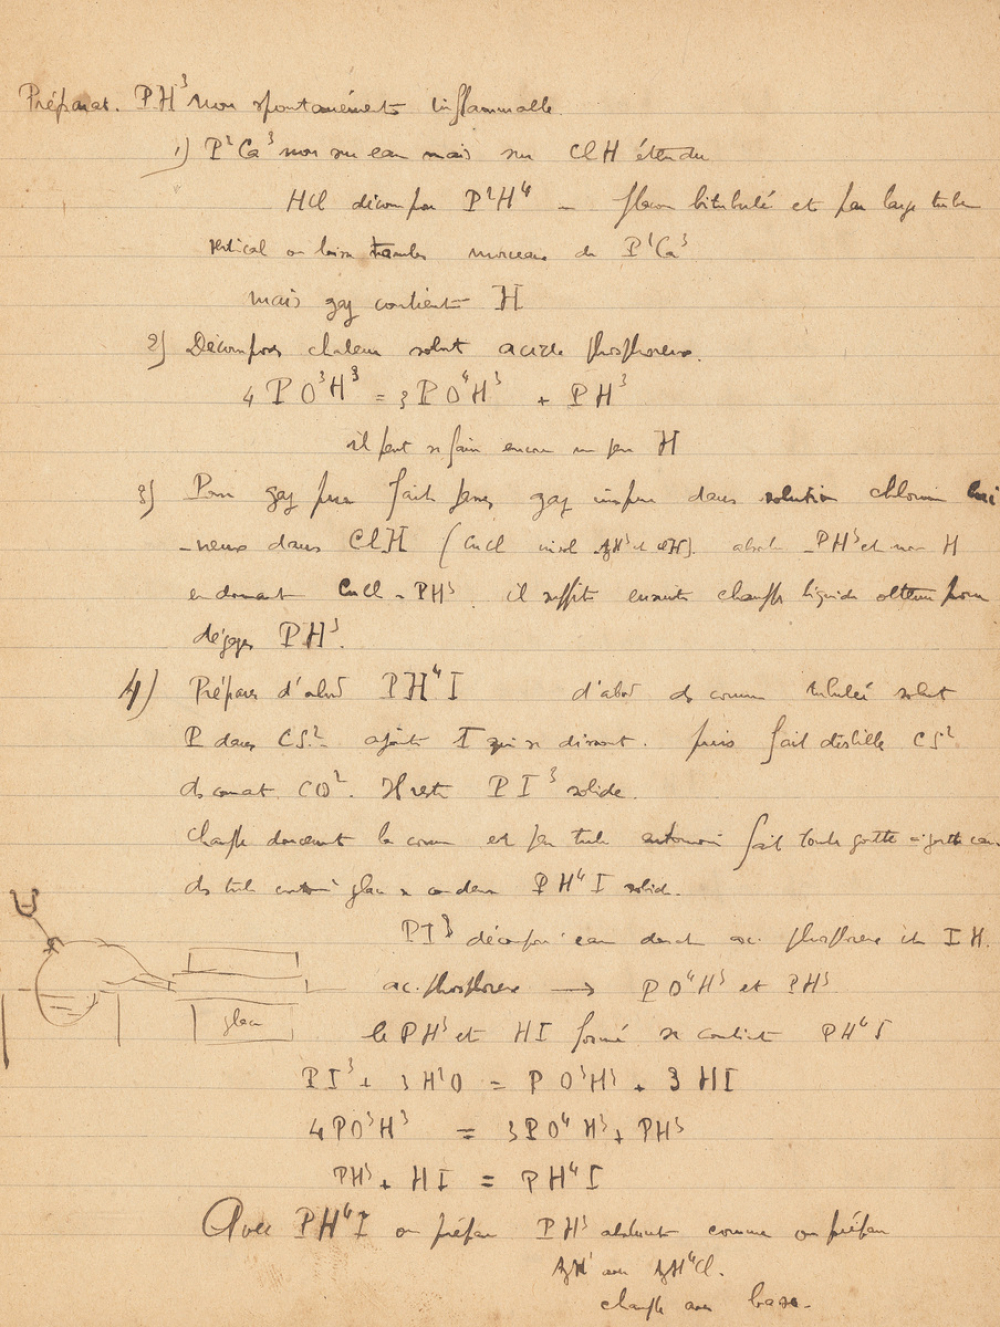 Préparat. PH³ non spontanément inflammable.
1) P²Ca³ non sur eau mais sur ClH étendu
HCl décompose P²H⁴ – flacon bitubulé et par large tube
vertical on laisse tomber morceaux de P²Ca³
mais gaz contient H
2) Décompose chaleur solut acide phosphoreux.
4PO³H³ = 3PO⁴H³ + PH³
il peut se faire encore un peu H
3) Pour gaz pur fait passer gaz impur dans solution chlorure cui
-vreux dans ClH (CuCl insol AzH³ et ClH). absorbe PH³ et non H
en donnant CuCl - PH³. il suffit ensuite chauffer liquide obtenu pour
dégager PH³.
4) Préparer d'abord PH⁴I d'abord ds cornue tubulée solut
P dans CS². ajoute I qui se dissout. puis fait distille CS²
ds courant CO². Il reste PI³ solide.
chauffe doucement la cornue et par tube entonnoir fait tomber goutte à goutte eau
ds tube entouré glace se condense PH⁴I solide.
PI³ décompose eau donnant ac. phosphoreux et IH.
glace
ac. phosphoreux → PO⁴H³ et PH³
le PH³ et HI formé se combinent PH⁴I
PI³ + 3H²O = PO³H³ + 3HI
4PO³H³ = 3PO⁴H³ + PH³
PH³ + HI = PH⁴I
Avec PH⁴I on prépare PH³ absolument comme on prépare
AzH³ avec AzH⁴Cl.
chauffe avec base.